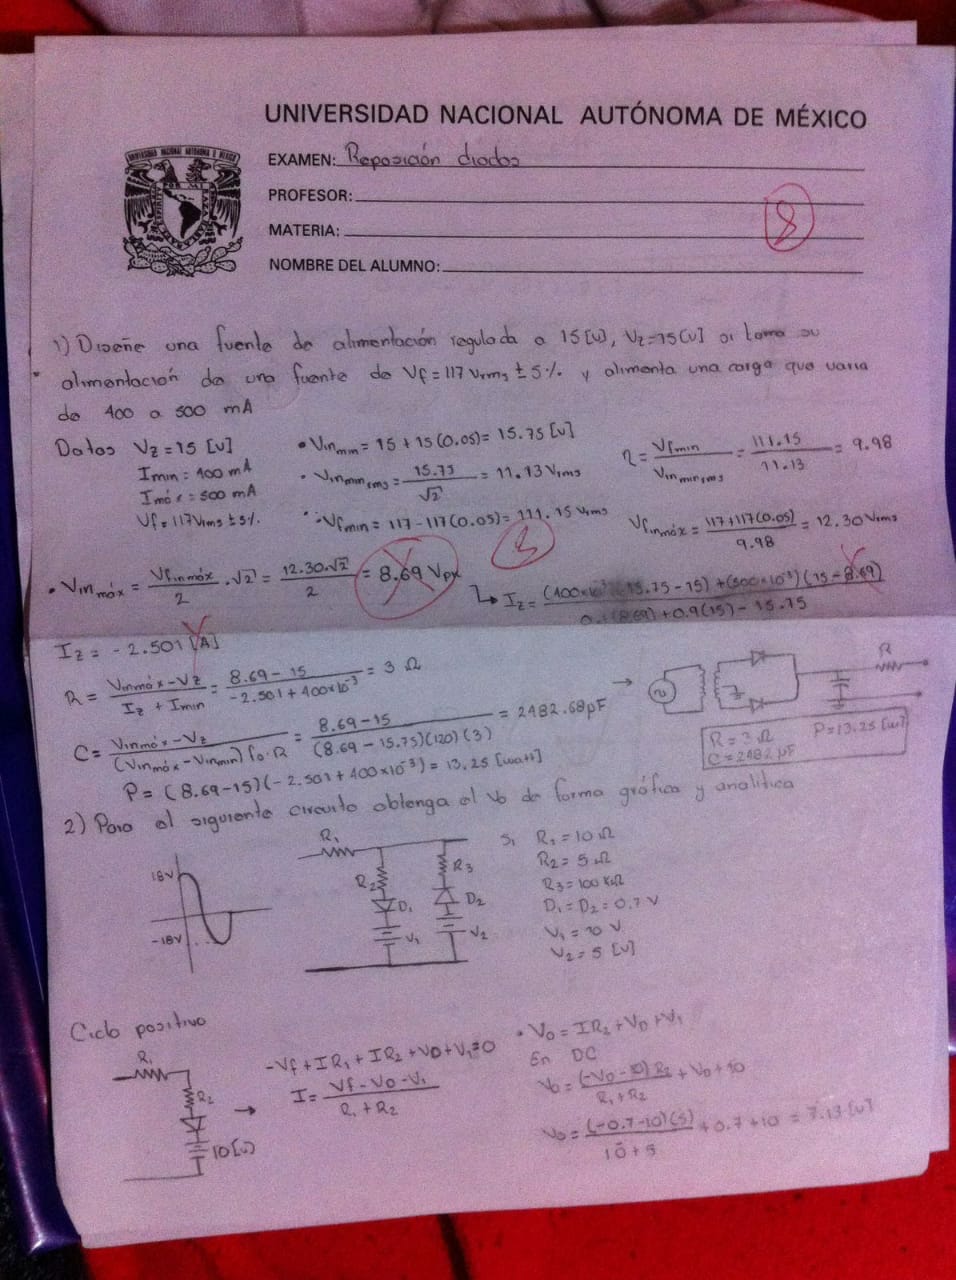 UNIVERSIDAD NACIONAL AUTÓNOMA DE MÉXICO
EXAMEN: Reposición diodos
PROFESOR:
MATERIA:
8
NOMBRE DEL ALUMNO:
1) Diseñe una fuente de alimentación regulada a 15[v], Vz=15[v] si toma su
alimentación de una fuente de Vf = 117 Vrms ± 5% y alimenta una carga que varia
de 400 a 500 mA
Datos Vz = 15 [v]
Imin = 400 mA
Imáx = 500 mA
Vf = 117Vrms ± 5%
• Vinmin = 15 + 15(0.05) = 15.75 [v]
• Vinminrms = 15.75/√2 = 11.13 Vrms
∴ Vfmin = 117 - 117(0.05) = 111.15 Vrms
n = Vfmin/Vinminrms = 111.15/11.13 = 9.98
Vfinmáx = 117+117(0.05)/9.98 = 12.30 Vrms
• Vinmáx = Vfinmáx/2 · √2 = 12.30·√2/2 = 8.69 Vpk
3
↳ Iz = (400x10⁻³)(15.75-15)+(500x10⁻³)(15-8.69)/0.1(8.69)+0.9(15)-15.75
Iz = -2.501 [A]
R = Vinmáx - Vz/Iz + Imin = 8.69 - 15/-2.501 + 400x10⁻³ = 3 Ω
C = Vinmáx - Vz/(Vinmáx - Vinmin) fo·R = 8.69 - 15/(8.69 - 15.75)(120)(3) = 2482.68µF
P = (8.69-15)(-2.501 + 400x10⁻³) = 13.25 [watt]
→
R
R = 3 Ω P = 13.25 [w]
C = 2482 µF
2) Para el siguiente circuito obtenga el Vo de forma gráfica y analítica
18V
-18V
R₁
R₂
D₁
V₁
R₃
D₂
V₂
Si R₁ = 10 Ω
R₂ = 5 Ω
R₃ = 100 KΩ
D₁ = D₂ = 0.7 V
V₁ = 10 V
V₂ = 5 [v]
Ciclo positivo
R₁
R₂
10[v]
→
-Vf + IR₁ + IR₂ + VD + V₁ = 0
I = Vf - VD - V₁/R₁ + R₂
• Vo = IR₂ + VD + V₁
En DC
Vo = (-VD - 10) R₂/R₁ + R₂ + VD + 10
Vo = (-0.7 - 10)(5)/10 + 5 + 0.7 + 10 = 7.13 [v]